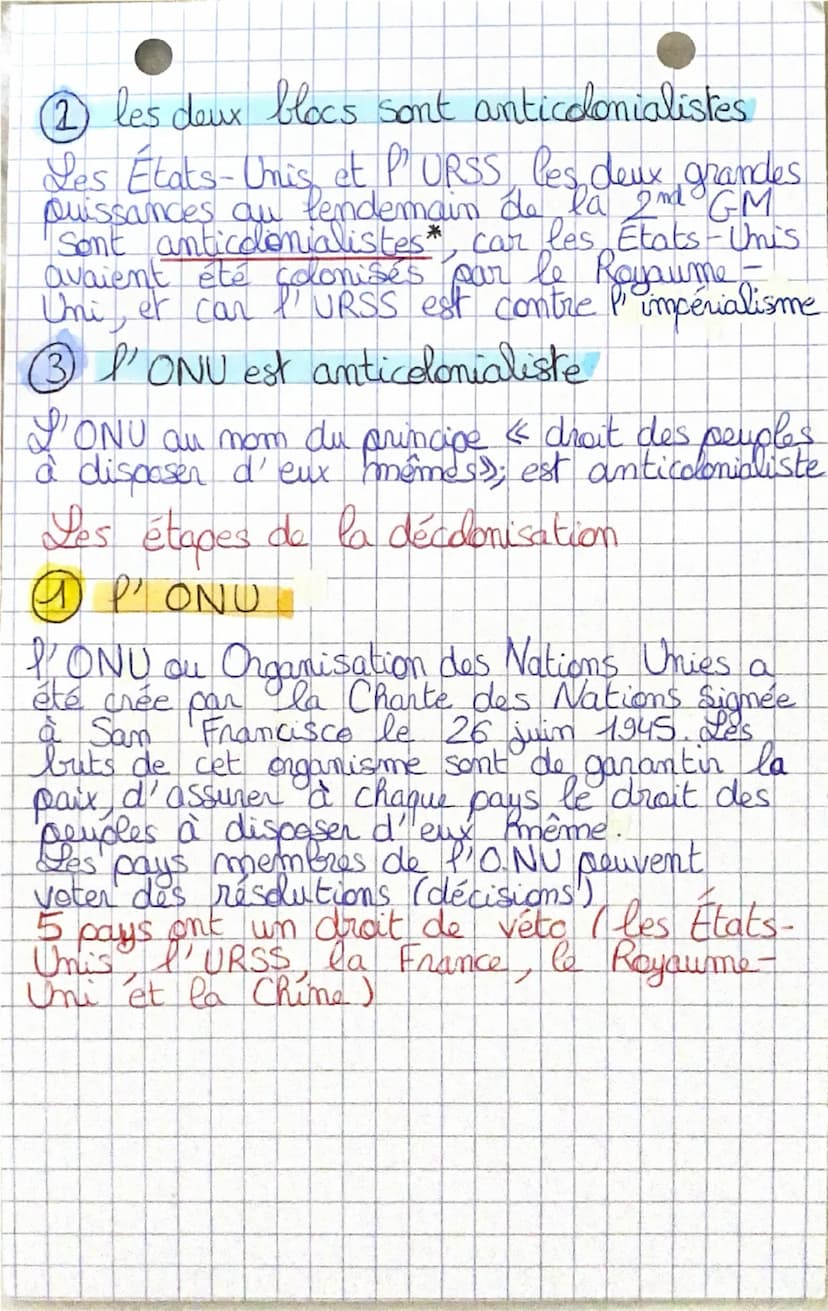 ② les deux blocs sont anticolonialistes
Les États-Unis et l'URSS, les deux grandes
puissances au lendemain de la 2nd GM
sont anticolonialistes*, car les États-Unis
avaient été colonisés par le Royaume-
Uni, et car l'URSS est contre l'impérialisme
③ l'ONU est anticolonialiste
L'ONU au nom du principe « droit des peuples
à disposer d'eux mêmes»; est anticolonialiste
Les étapes de la décolonisation
① l'ONU
l'ONU ou Organisation des Nations Unies a
été crée par la Charte des Nations signée
à San Francisco le 26 juin 1945. Les
buts de cet organisme sont de garantir la
paix, d'assurer à chaque pays le droit des
peuples à disposer d'eux même.
Les pays membres de l'O.NU peuvent
voter des résolutions (décisions)
5 pays ont un droit de véto (les États-
Unis, l'URSS, la France, le Royaume-
Uni et la Chine)